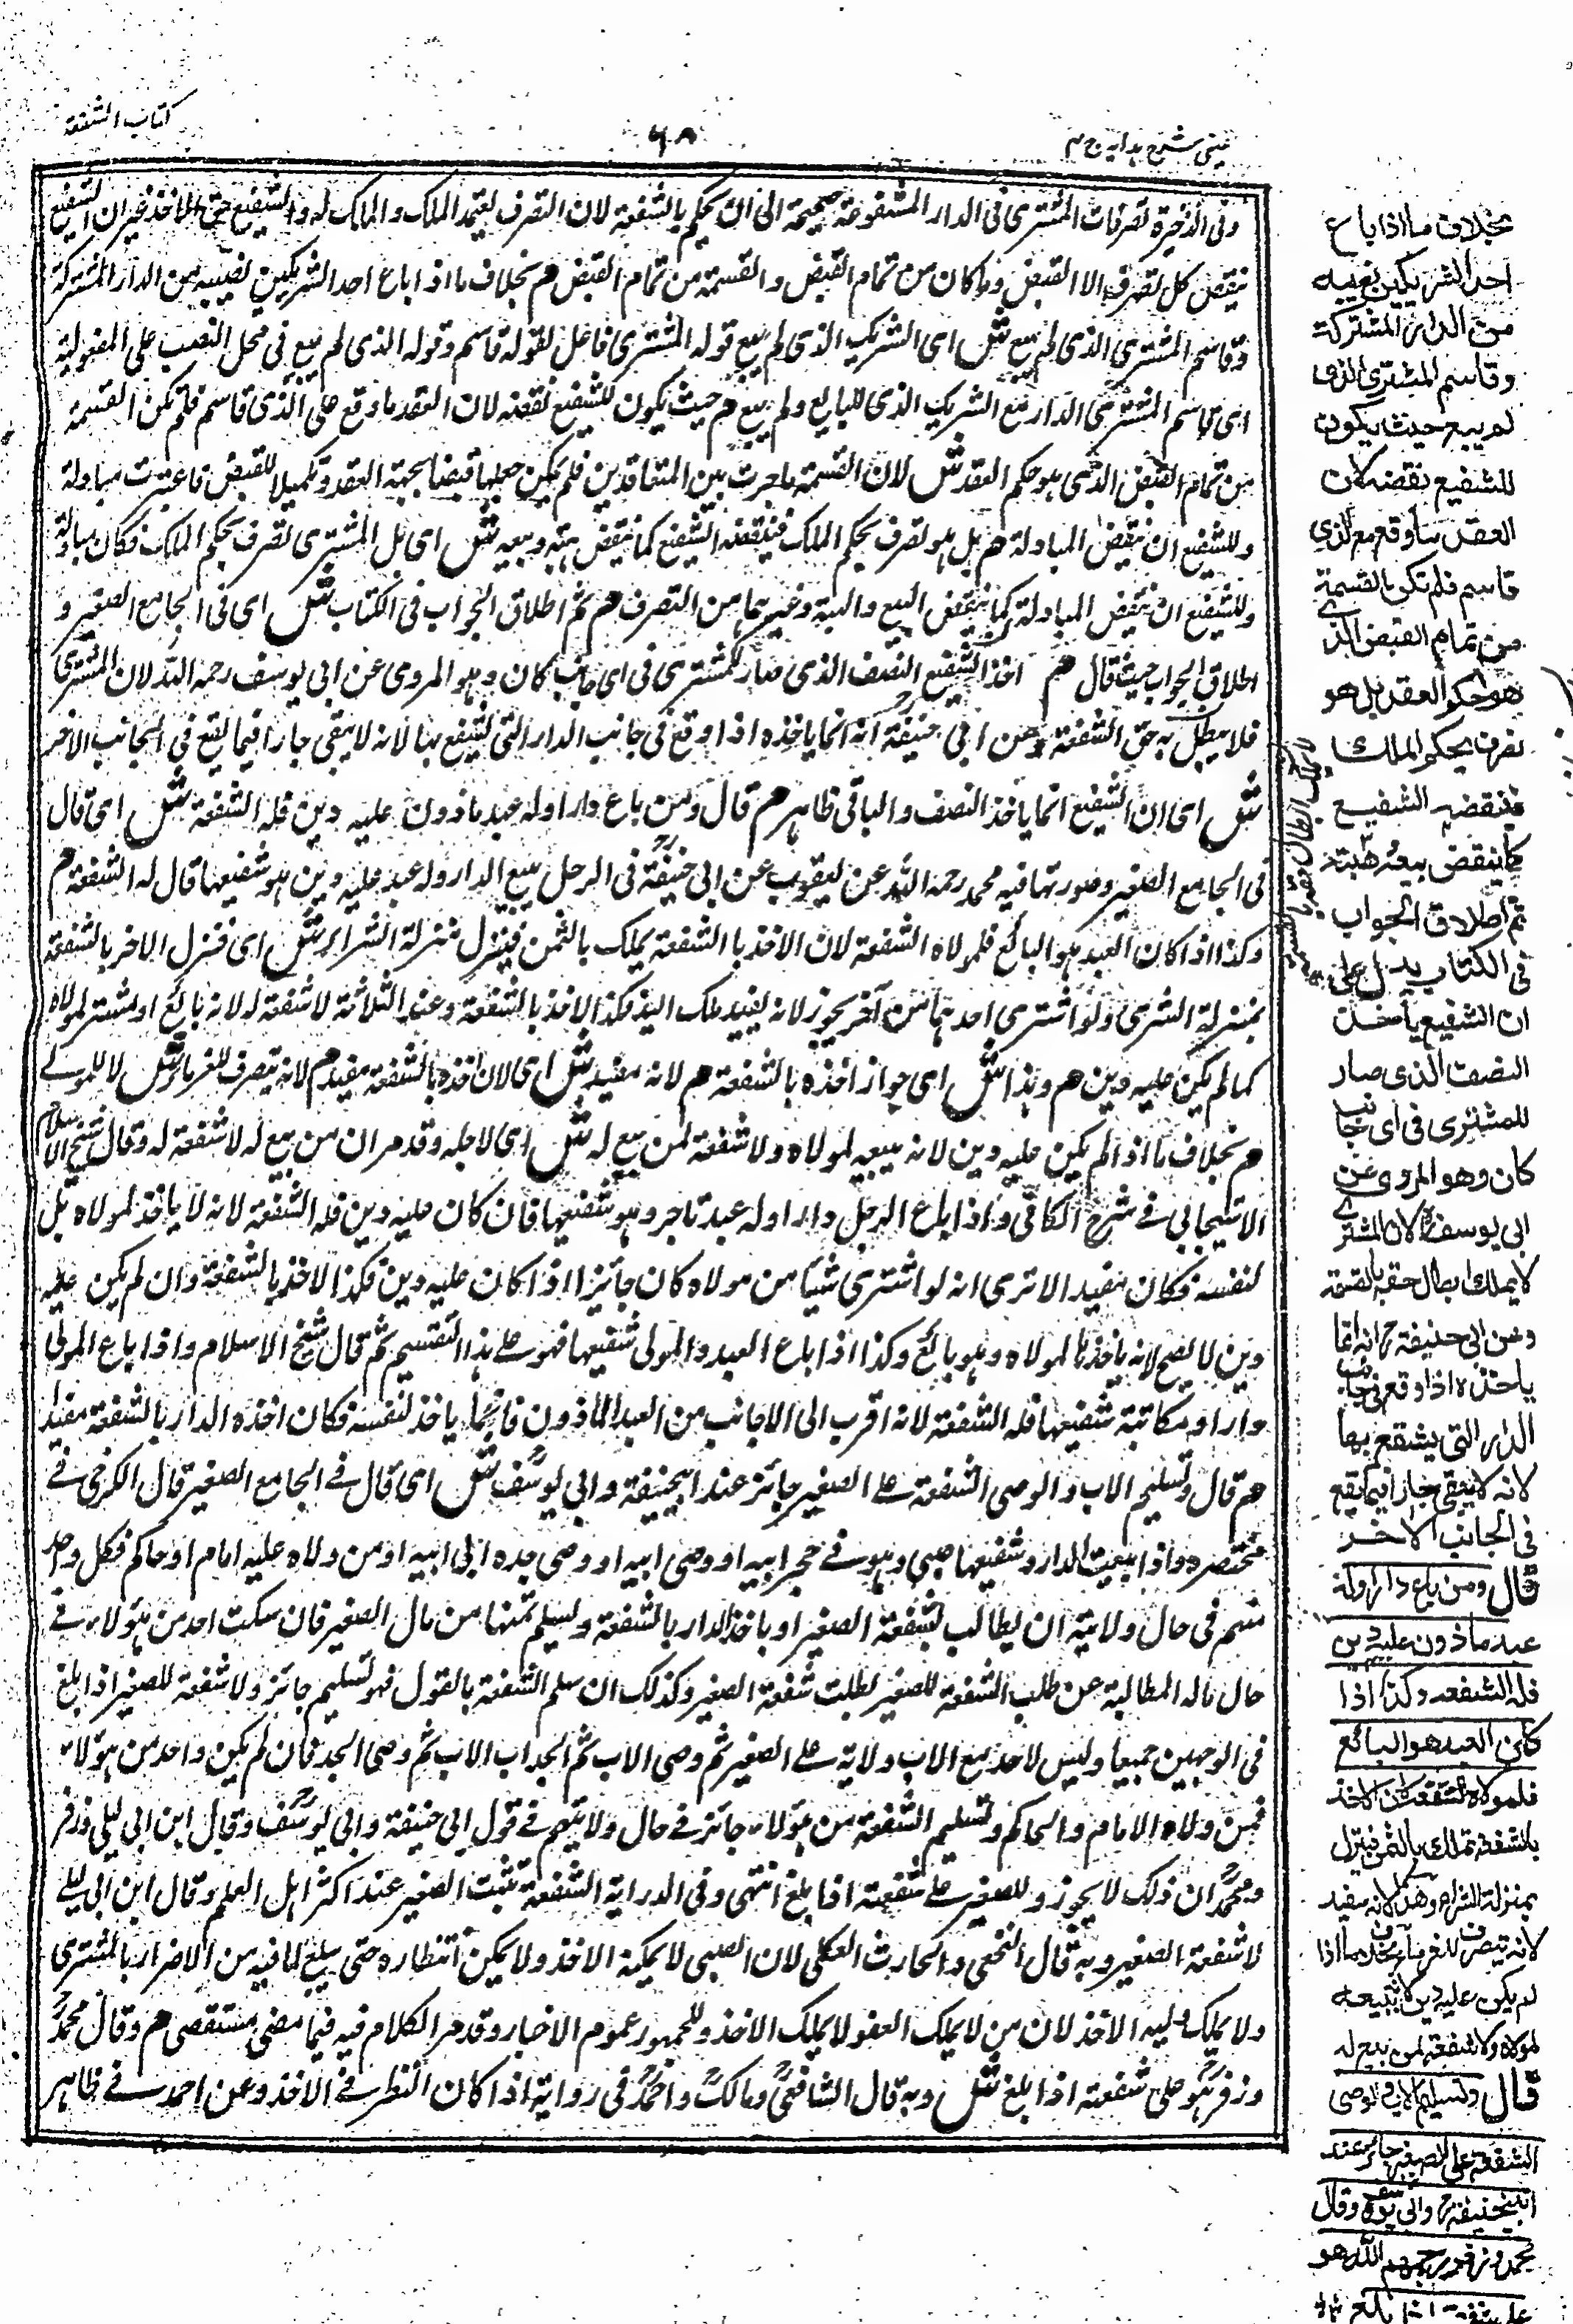 عینی شرح ہدایہ ج ۳
۶۸
کتاب الشفعة
وفی الذخیرة تصرفات المشتری فی الدار المشفوعة صحیحة الی ان یحکم بالشفعة لان التصرف یعتمد الملک والملک له وللشفیع حق الاخذ غیر ان الشفیع
ینقض کل تصرف الا القبض وما کان من تمام القبض والقسمة من تمام القبض هم بخلاف ما اذا باع احد الشریکین نصیبه من الدار المشترکة
وقاسم المشتری الذی لم یبع ش ای الشریک الذی لم یبع قوله المشتری فاعل لقوله قاسم وقوله الذی لم یبع فی محل النصب علی المفعولیة
ای قاسم المشتری الدار مع الشریک الذی للبایع ولم یبع هم حیث یکون للشفیع نقضه لان العقد ما وقع علی الذی قاسم فلم تکن القسمة
من تمام القبض الذی هو حکم العقد ش لان القسمة ما جرت بین المتعاقدین فلم یکن جعلها قبضا بجهة العقد وتکمیلا للقبض فاعتبرت مبادلة
وللشفیع ان ینقض المبادلة هم بل هو تصرف بحکم الملک فینقضه الشفیع کما ینقض هبته وبیعه ش ای بل المشتری تصرف بحکم الملک فکان مبادلة
وللشفیع ان ینقض المبادلة کما ینقض البیع والهبة وغیرهما من التصرف هم ثم اطلاق الجواب فی الکتاب ش ای فی الجامع الصغیر و
اطلاق الجواب حیث قال هم اخذ الشفیع النصف الذی صار للمشتری فی ای جانب کان وهو المروی عن ابی یوسف رحمه الله لان المشتری
فلا یبطل به حق الشفعة وعن ابی حنیفة انه انما یاخذه اذا وقع فی جانب الدار التی یشفع بها لانه لا یبقی جارا فیما یقع فی الجانب الاخر
ش ای ان الشفیع انما یاخذ النصف والباقی ظاهر هم قال ومن باع دارا وله عبد ماذون علیه دین فله الشفعة ش ای قال
فی الجامع الصغیر وصورتها فیه محمد رحمه الله عن یعقوب عن ابی حنیفة فی الرجل یبیع الدار وله عبد علیه دین هو شفیعها قال له الشفعة هم
وکذا اذا کان العبد هو البائع فلمولاه الشفعة لان الاخذ بالشفعة یملک بالثمن فینزل منزلة الشراء ش ای فنزل الاخر بالشفعة
بمنزلة الشری ولو اشتری احدهما من آخر یجوز لانه یفید ملک الید فکذا الاخذ بالشفعة وعند الثلاثة لا شفعة له لانه بائع او مشتر لمولاه
کما لم یکن علیه دین هم وهذا ش ای جواز اخذه بالشفعة هم لانه مفید ش ای لان اخذه بالشفعة مفید هم لانه یتصرف للغرماء ش لا للمولے
هم بخلاف ما اذا لم یکن علیه دین لانه یبیعه لمولاه ولا شفعة لمن یبیع له ش ای لاجله وقد مر ان من یبیع له لا شفعة له وقال شیخ الاسلام
الاسبیجابی فے شرح الکافی واذا باع الرجل دارا وله عبد تاجر وهو شفیعها فان کان علیه دین فله الشفعة لانه لا یاخذ لمولاه بل
لنفسه فکان مفید الا تری انه لو اشتری شیئا من مولاه کان جائزا اذا کان علیه دین فکذا الاخذ بالشفعة وان لم یکن علیه
دین لا یصح لانه یاخذها لمولاه وهو بائع وکذا اذا باع العبد والمولی شفیعها فهو علے هذا التقسیم ثم قال شیخ الاسلام واذا باع المولی
دارا ومکاتبه شفیعها فله الشفعة لانه اقرب الی الاجانب من العبد الماذون فانما یاخذ لنفسه فکان اخذه الدار بالشفعة مفید
هم قال وتسلیم الاب والوصی الشفعة علے الصغیر جائز عند ابی حنیفة وابی یوسف ش ای قال فے الجامع الصغیر قال الکرخی فے
مختصره واذا بیعت الدار وشفیعها صبی وهو فے حجر ابیه او وصی ابیه او وصی جده ابی ابیه او من ولاه علیه امام او حاکم فکل واحد
منهم فی حال ولایته ان یطالب بشفعة الصغیر او یاخذ الدار بالشفعة ویسلم ثمنها من مال الصغیر فان سکت احد من هؤلاء فے
حال ماله المطالبة عن طلب الشفعة للصغیر بطلت شفعة الصغیر وکذلک ان سلم الشفعة بالقول فهو تسلیم جائز ولا شفعة للصغیر اذا بلغ
فی الوجهین جمیعا ولیس لاحد مع الاب ولایة علے الصغیر ثم وصی الاب ثم الجد اب الاب ثم وصی الجد فان لم یکن واحد من هؤلاء
فمن ولاه الامام والحاکم وتسلیم الشفعة من هؤلاء جائز فے حال ولایتهم فے قول ابی حنیفة وابی یوسف وقال ابن ابی لیلی وزفر
ومحمد ان ذلک لا یجوز وللصغیر علے شفعته اذا بلغ انتهی وفی الدرایة الشفعة تثبت الصغیر عند اکثر اهل العلم وقال ابن ابی لیلے
لا شفعة الصغیر وبه قال النخعی والحارث العکلی لان الصبی لا یمکنه الاخذ ولا یمکن انتظاره حتی یبلغ لما فیه من الاضرار بالمشتری
ولا یملک ولیه الاخذ لان من لا یملک العفو لا یملک الاخذ وللجمهور عموم الاخبار وقد مر الکلام فیه فیما مضی مستقصی هم وقال محمد
وزفر هو علی شفعته اذا بلغ ش وبه قال الشافعی ومالک واحمد فی روایة اذا کان النظر فے الاخذ وعن احمد فے ظاهر
بخلاف ما اذا باع
احد الشریکین نصیبه
من الدار المشترکة
وقاسم المشتری الذی
لم یبع حیث یکون
للشفیع نقضه لان
العقد ما وقع مع الذی
قاسم فلم تکن القسمة
من تمام القبض الذی
هو حکم العقد بل هو
تصرف بحکم الملک
فینقضه الشفیع
کما ینقض بیعه وهبته
ثم اطلاق الجواب
فی الکتاب یدل علی
ان الشفیع یأخذ
النصف الذی صار
للمشتری فی ای جانب
کان وهو المروی عن
ابی یوسف لان المشتری
لا یملک ابطال حقه بالقسمة
وعن ابی حنیفة انه انما
یاخذه اذا وقع فی جانب
الدار التی یشفع بها
لانه لا یبقی جارا فیما یقع
فی الجانب الاخر
قال ومن باع دارا وله
عبد ماذون علیه دین
فله الشفعة وکذا اذا
کان العبد هو البائع
فلمولاه الشفعة لان الاخذ
بالشفعة تملک بالثمن فینزل
بمنزلة الشراء وهذا لانه مفید
لانه یتصرف للغرماء بخلاف ما اذا
لم یکن علیه دین لانه یبیعه
لمولاه ولا شفعة لمن یبیع له
قال وتسلیم الاب والوصی
الشفعة علی الصغیر جائز عند
ابی حنیفة وابی یوسف وقال
محمد وزفر رحمهم الله هو
علی شفعته اذا بلغ
لا یملک ابطال حقه بالقسمة